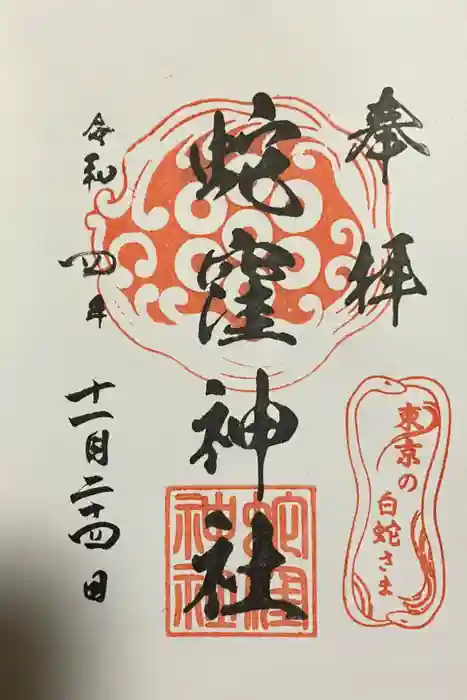 奉拝
蛇窪神社
令和四年
十一月二十四日
東京の
白蛇さま
蛇窪
神社